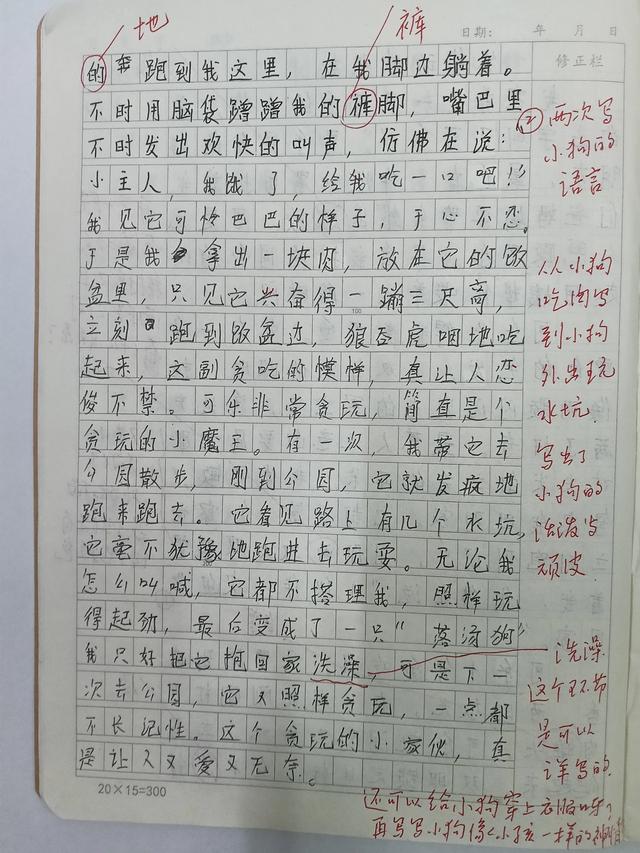 地
裤
日期： 年 月 日
修正栏
的奔跑到我这里，在我脚边躺着。
不时用脑袋蹭蹭我的裤脚，嘴巴里
不时发出欢快的叫声，仿佛在说：
小主人，我饿了，给我吃一口吧！”
我见它可怜巴巴的样子，于心不忍。
于是我拿出一块肉，放在它的饭
盆里，只见它兴奋得一蹦三尺高，
100
立刻跑到饭盆边，狼吞虎咽地吃
起来，这副贪吃的模样，真让人忍
俊不禁。可乐非常贪玩，简直是个
贪玩的小魔王。有一次，我带它去
公园散步，刚到公园，它就发疯地
跑来跑去。它看见路上有几个水坑，
它毫不犹豫地跑进去玩耍。无论我
怎么叫喊，它都不搭理我，照样玩
得起劲，最后变成了一只“落汤狗”
我只好把它抱回家洗澡，可是下一
次去公园，它又照样贪玩，一点都
不长记性。这个贪玩的小家伙，真
是让人又爱又无奈。
20×15=300
②两次写
小狗的
语言
从小狗
吃肉写
到小狗
外出玩
水坑
写出了
小狗的
活泼与
顽皮
洗澡
这个环节
是可以
详写的
还可以给小狗穿上衣服
再写写小狗像小孩一样的